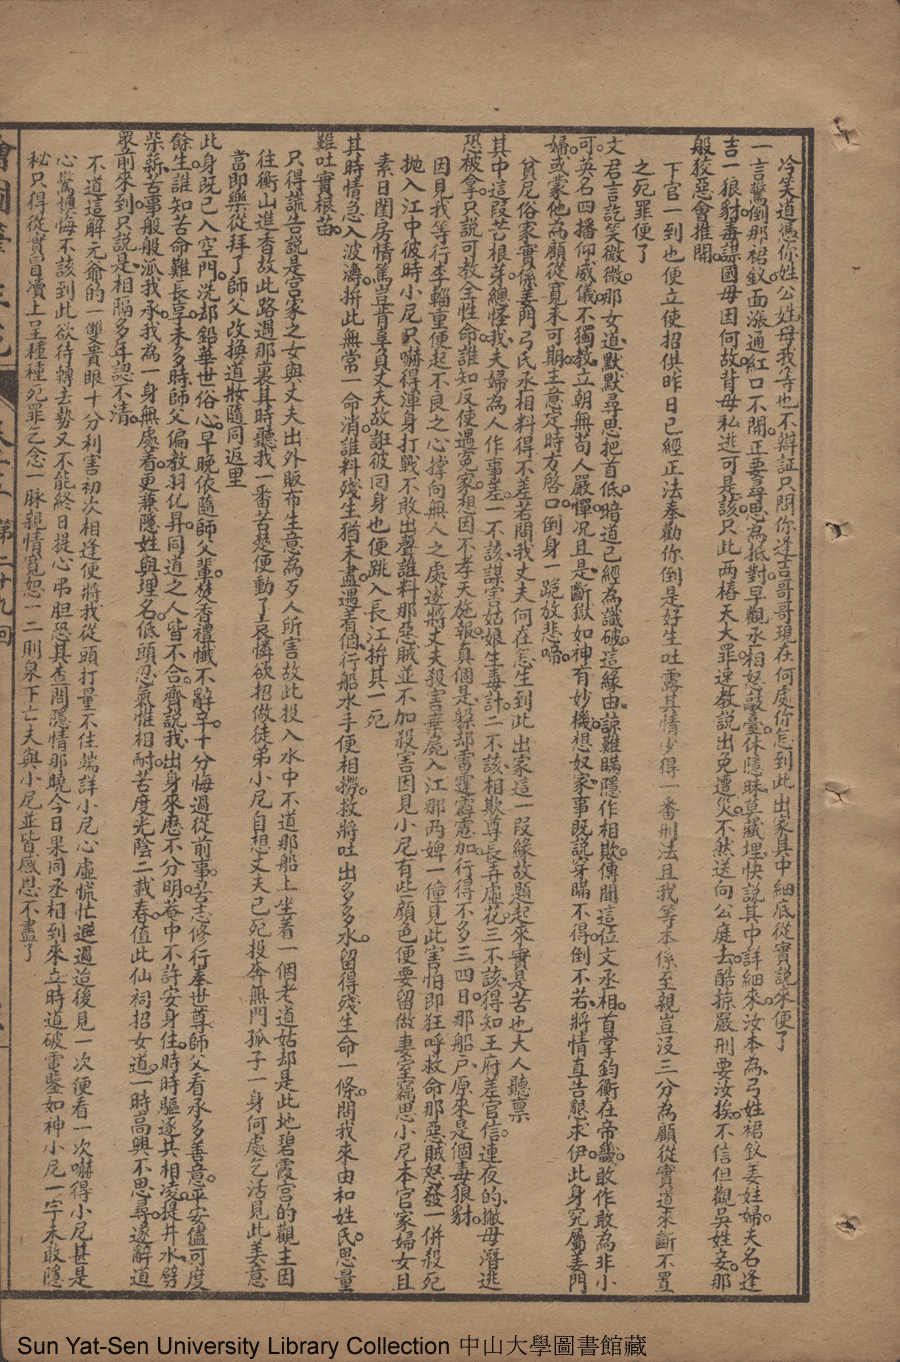 冷笑道憑你姓公姓母我等也不辯証只問你逢吉哥哥現在何處你怎到此出家其中細底從實說來便了
一言驚倒那裙釵面漲通紅口不開正要尋思為抵對早觀丞相怒敲臺休隱昧莫藏埋快說其中詳細來汝本為弓姓裙釵姜娃婦夫名逢
吉一狼豺毒謀國母因何故背母私逃可是該只此兩樁天大罪速教說出免遭災不然送向公庭去酷掠嚴刑要汝挨不信但觀吳姓妾那
般狡惡會推開
下官一到也便立使招供昨日已經正法奉勸你倒是好生吐露其情少得一番刑法且我等本係至親豈沒三分為顧從實道來斷不置
之死罪便了
文君言訖笑微微那女道默默尋思把首低暗道已經為識破這緣由諒難瞞隱作相欺傳聞這位文丞相首掌鈞衡在帝畿敢作敢為非小
可英名四播仰威儀不獨教立朝無苟人嚴憚况且是斷獄如神有妙機想奴家事既說穿瞞不得倒不若將情直告懇求伊此身究屬姜門
婦或蒙他為顧從寬未可期主意定時方啓口倒身一跪放悲啼
貧尼俗家實係姜門弓氏丞相料得不差若問我丈夫何在怎生到此出家這一段緣故題起來實是苦也大人聽禀
其中這段苦根芽總怪我夫婦為人作事差一不該謀害姑娘生毒計二不該相欺尊長弄虛花三不該得知王府差官信連夜的撇母潛逃
恐被拿只說可救全性命誰知反使遇冤家想因不孝天施報真個是躲却雷霆霹靂加行得不多三四日那船戶原來是個毒狼豺
因見我等行李輜重便起不良之心撑向無人之處遂將丈夫殺害棄屍入江那两婢一僮見此害怕即狂呼救命那惡賊怒發一併殺死
拋入江中彼時小尼只嚇得渾身打戰不敢出聲誰料那惡賊並不加殺害因見小尼有些顏色便要留做妻室竊思小尼本官家婦女且
素日閨房情篤豈肯辜負丈夫故誑彼同身也便跳入長江拚其一死
其時情急入波濤拚此無常一命消誰料殘生猶未盡遇着個行船水手便相撈救將吐出多多水留得殘生命一條問我來由和姓氏思量
難吐實根苗
只得謊告說是宦家之女與丈夫出外販布生意為歹人所害故此投入水中不道那船上坐着一個老道姑却是此地碧霞宫的觀主因
往衡山進香故此路過那裏其時聽我一番苦楚便動了哀憐欲招做徒弟小尼自想丈夫已死投奔無門孤子一身何處乞活見此美意
當即樂從拜了師父改換道妝隨同返里
此身既已入空門洗却鉛華世俗心早晚依隨師父輩焚香禮懺不辭辛十分悔過從前事苦志修行奉世尊師父看承多善意平安儘可度
餘生誰知苦命難長享未多時師父偏教羽化昇同道之人皆不合齊說我出身來歷不分明菴中不許安身住時時驅逐共相凌提井水劈
柴薪苦事般般派我承我為一身無處着更兼隱姓與埋名低頭忍氣惟相耐苦度光陰二載春值此仙祠招女道一時高興不思尋遂辭道
眾前來到只說是相隔多年認不清
不道這解元爺的一雙貴眼十分利害初次相逢便將我從頭打量不住端詳小尼心虛慌忙廻過迨後見一次便看一次嚇得小尼甚是
心驚懊悔不該到此欲待轉去勢又不能終日提心吊胆恐其查問隱情那曉今日果同丞相到來立時道破電鑒如神小尼一字未敢隱
秘只得從實冒凟上呈種種死罪乞念一脉親情寬恕一二則泉下亡夫與小尼並皆感恩不盡了
第二十九囘
Sun Yat-Sen University Library Collection 中山大學圖書館藏